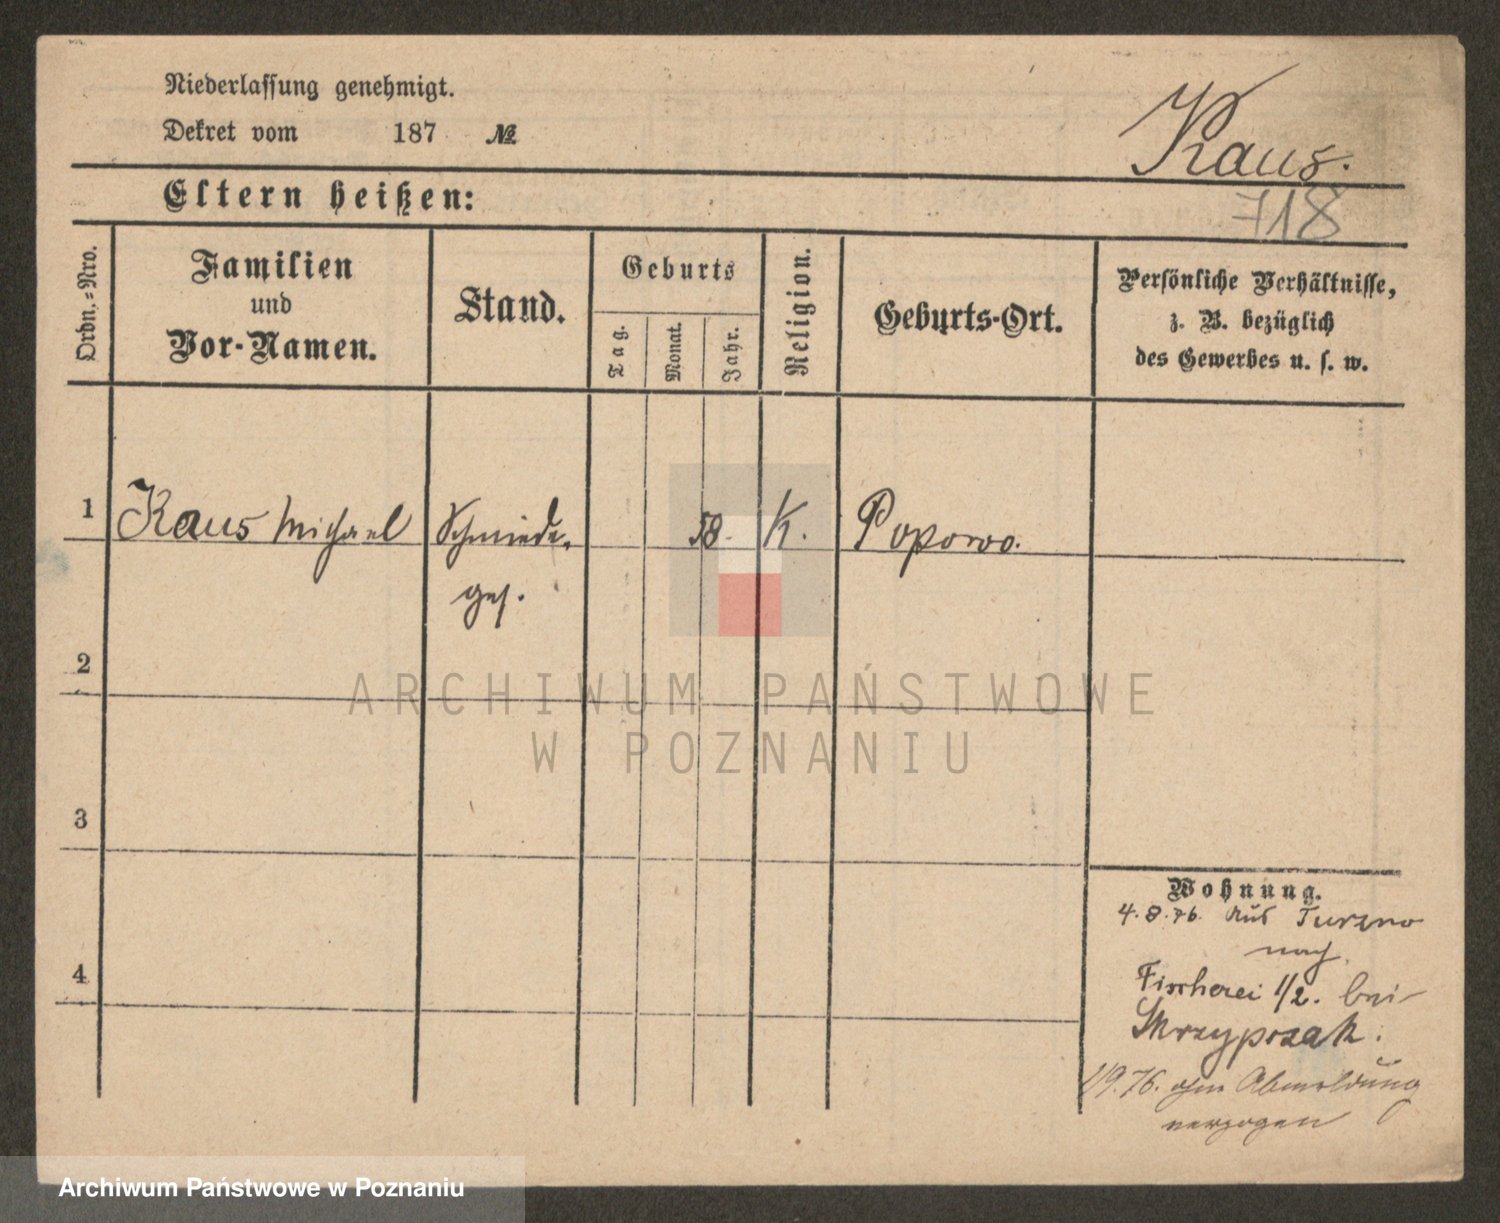 Niederlassung genehmigt.
Dekret vom 187 №
Kaus.
Eltern heißen:
718
Ordn.=Nro.
Familien
und
Vor-Namen.
Stand.
Geburts
Tag.
Monat.
Jahr.
Religion.
Geburts-Ort.
Persönliche Verhältnisse,
z. B. bezüglich
des Gewerbes u. s. w.
1 Kaus Michael Schmiede- 58. K. Poporoo.
ges.
2
ARCHIWUM PAŃSTWOWE
W POZNANIU
3
Wohnung.
4.8.76. Aus Turzno
nach
4
Fischerei 1/2. bei
Skrzypczak.
9.76. ohne Abmeldung
verzogen
Archiwum Państwowe w Poznaniu